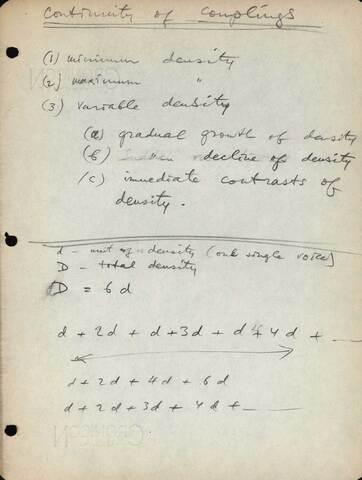 Continuity of Couplings
(1) minimum density
(2) maximum "
(3) variable density
(a) gradual growth of density
(b) " decline of density
(c) immediate contrasts of
density.
d – unit of density (one single voice)
D – total density
D = 6 d
d + 2d + d + 3d + d + 4d +
d + 2d + 4d + 6d
d + 2d + 3d + 4d +